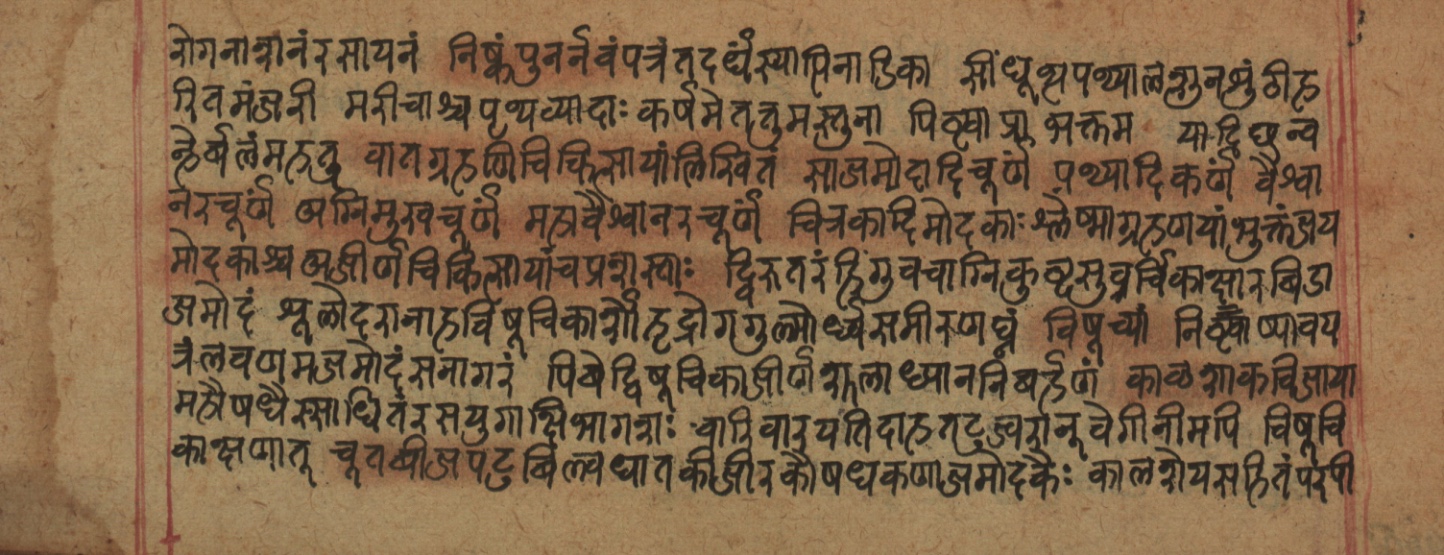 रोगनाशनंरसायनं निष्कंपुनर्नवंपत्रंतदर्धंस्यापिनाडिका सींधूथपथ्यालशुनशुंठीह
रितमंजरी मरीचाश्चपृथग्यादाः कर्षमेतत्तुमस्तुना पिष्ट्वा भक्तम
न्हेर्बलंमहत्तु वातग्रहणिचिकित्सायांलिखितं साजमोदादिचूर्णं पथ्यादिकर्णं वैश्वा
नरचूर्णं अग्निमुखचूर्णं महावैश्वानरचूर्णं चित्रकादिमोदकाः श्लेष्माग्रहणयांभुक्तंजय
मोदकाश्चअजीर्णचिकित्सायांचप्रशस्ताः द्विरुतरंहिंगुवचाग्निकुष्टसुवर्चिकाक्षारबिडा
जमोदं शूलोदरानाहविषूचिकार्शोहृद्रोगगुल्मोर्ध्वसमीरणघ्नं विषूच्यां
त्रंलवणमजमोदंसनागरं पिबेद्विषूचिकाजीर्णशूलाध्माननिबर्हणं काळशाकविजाया
महौषधैस्साधितंरसयुगाक्षिभागशः वारिवारयतिदाहतट्ज्वरानूवेगीनीमपि विषूचि
काक्षणातू चूतबीजपटुबिल्वधातकीजीरकौषधकणाजमोदकैः कालशेयसहितंपरंपी